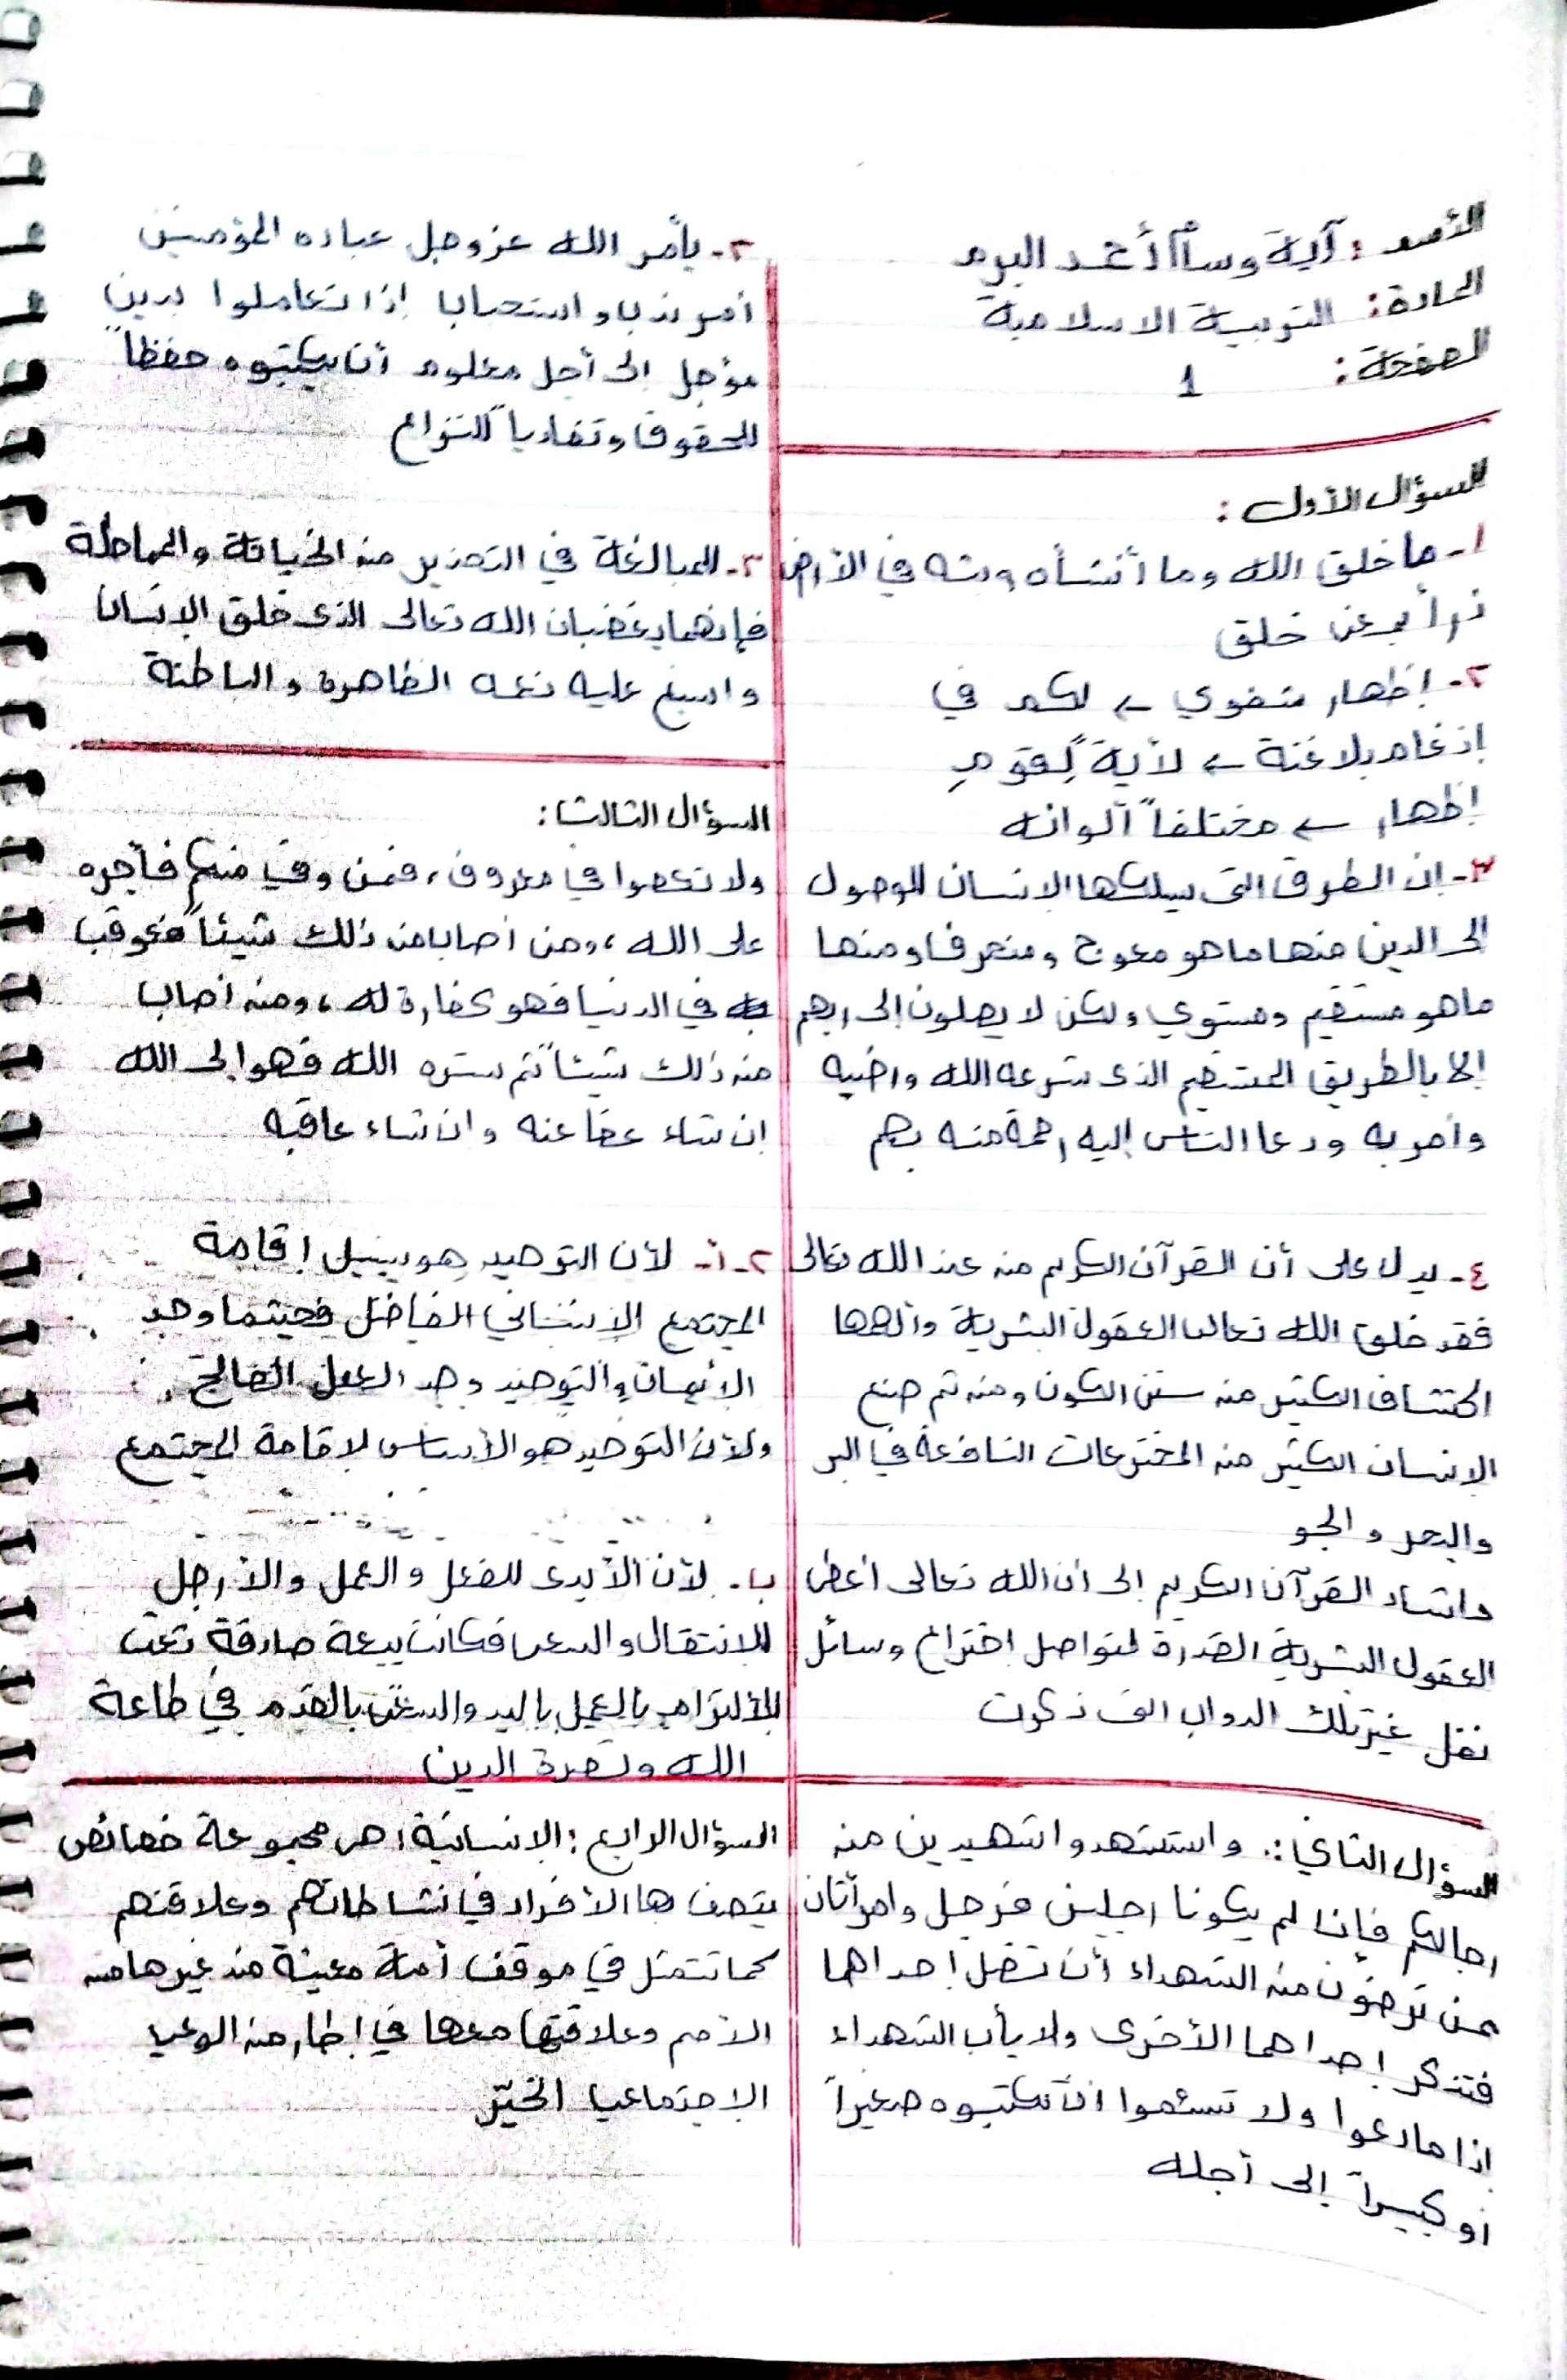 الأسم : آية وسام أسعد البرم
المادة : التربية الاسلامية
الصفحة : 1
السؤال الأول :
١- ما خلق الله وما أنشأه وبثه في الأرض
ذرأ بمعنى خلق
٢- إظهار شفوي ← لكم في
إدغام بلا غنة ← لأيةً لِقومِ
إظهار ← مختلفاً ألوانه
٣- ان الطرق التي يسلكها الإنسان للوصول
الى الدين منها ما هو معوج ومنحرف ومنها
ما هو مستقيم ومستوي ولكن لا يصلون إلى ربهم
إلا بالطريق المستقيم الذي شرعه الله ورضيه
وأمر به ودعا الناس إليه رحمة منه بهم
٤- يدل على أن القرآن الكريم من عند الله تعالى
فقد خلق الله تعالى العقول البشرية وألهمها
اكتشاف الكثير من سنن الكون ومن ثم صنع
الإنسان الكثير من المخترعات النافعة في البر
والبحر والجو
واشار القرآن الكريم إلى أن الله تعالى أعطى
العقول البشرية القدرة لتواصل اختراع وسائل
نقل غير تلك الدواب التي ذكرت
السؤال الثاني : واستشهدوا شهيدين من
رجالكم فإن لم يكونا رجلين فرجل وامرأتان
ممن ترضون من الشهداء أن تضل إحداهما
فتذكر إحداهما الأخرى ولا يأب الشهداء
إذا ما دعوا ولا تسئموا ان تكتبوه صغيراً
أو كبيراً إلى أجله
٢- يأمر الله عز وجل عباده المؤمنين
أمر ندب واستحباب إذا تعاملوا بدين
مؤجل إلى أجل معلوم أن يكتبوه حفظاً
للحقوق وتفادياً للنزاع
٣- للمبالغة في التحذير من الخيانة والمماطلة
فإنهما يغضبان الله تعالى الذي خلق الإنسان
واسبغ عليه نعمه الظاهرة والباطنة
السؤال الثالث :
ولا تعصوا في معروف، فمن وفى منكم فأجره
على الله، ومن أصاب من ذلك شيئاً فعوقب
به في الدنيا فهو كفارة له، ومن أصاب
من ذلك شيئاً ثم ستره الله فهو إلى الله
ان شاء عفا عنه وان شاء عاقبه
٢- أ- لأن التوحيد هو سبيل إقامة
المجتمع الإنساني الفاضل فحيثما وجد
الأيمان والتوحيد وجد العمل الصالح
ولأن التوحيد هو الأساس لإقامة المجتمع
ب- لأن الأيدي للفعل والعمل والأرجل
للانتقال والسعي فكانت بيعة صادقة تعني
الألتزام بالعمل باليد والسعي بالقدم في طاعة
الله ونصرة الدين
السؤال الرابع : الإنسانية : هي مجموعة خصائص
يتصف بها الأفراد في نشاطاتهم وعلاقتهم
كما تتمثل في موقف أمة معينة من غيرها من
الأمم وعلاقتها معها في إطار من الوعي
الاجتماعي الخيّر